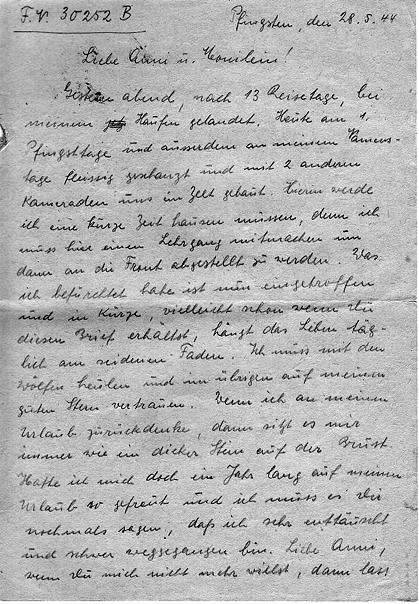 F.V. 30252 B
Pfingsten, den 28.5.44
Liebe Anni u. Monilein!
Gestern abend, nach 13 Reisetage, bei
meinem Haufen gelandet. Heute am 1.
Pfingsttage und ausserdem an meinem Namens-
tage fleissig geschanzt und mit 2 anderen
Kameraden uns im Zelt gebaut. Hierin werde
ich eine kurze Zeit hausen müssen, denn ich
muss hier einen Lehrgang mitmachen um
dann an die Front abgestellt zu werden. Was
ich befürchtet habe ist nun eingetroffen
und in Kürze, vielleicht schon wenn Du
diesen Brief erhältst, hängt das Leben täg-
lich am seidenen Faden. Ich muss mit den
Wölfen heulen und im übrigen auf meinem
guten Stern vertrauen. Wenn ich an meinem
Urlaub zurückdenke, dann sitzt es mir
immer wie ein dicker Stein auf der Brust
Hatte ich mich doch ein Jahr lang auf meinen
Urlaub so gefreut und ich muss es Dir
nochmals sagen, daß ich sehr enttäuscht
und schwer weggegangen bin. Liebe Anni,
wenn Du mich nicht mehr willst, dann lass